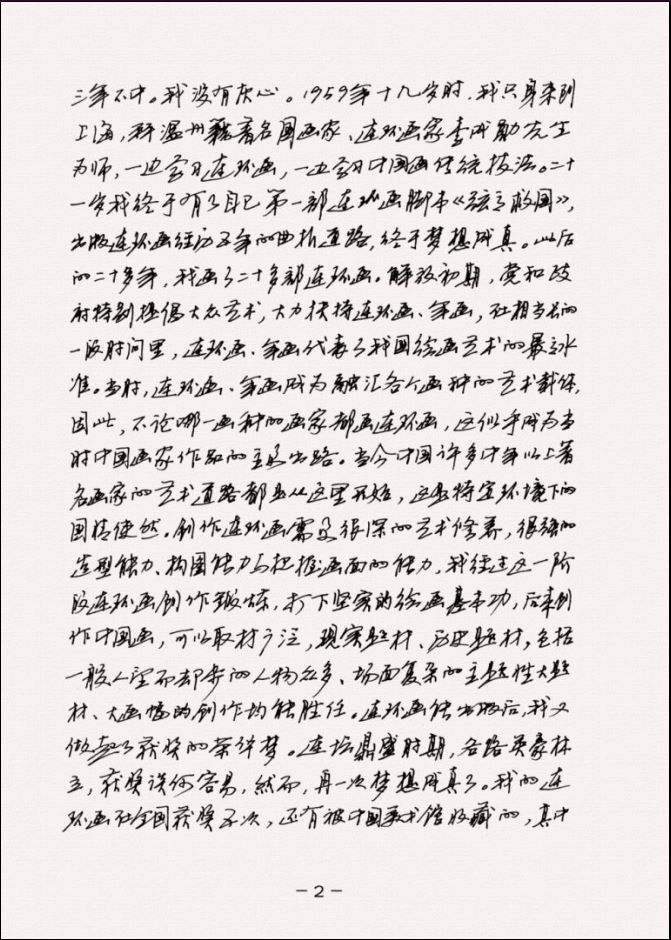 三年不中。我没有灰心。1959年十九岁时,我只身来到
上海,拜温州籍著名国画家、连环画家李成勋先生
为师,一边学习连环画,一边学习中国画传统技法。二十
一岁我终于有了自己第一部连环画脚本《弦高救国》,
出版连环画经历五年的曲折道路,终于梦想成真。此后
的二十多年,我画了二十多部连环画。解放初期,党和政
府特别提倡大众艺术,大力扶持连环画、年画,在相当长的
一段时间里,连环画、年画代表了我国绘画艺术的最高水
准。当时,连环画、年画成为融汇各个画种的艺术载体,
因此,不论哪一画种的画家都画连环画,这似乎成为当
时中国画家作品的主要出路。当今中国许多中年以上著
名画家的艺术道路都是从这里开始,这是特定环境下的
国情使然。创作连环画需要很深的艺术修养,很强的
造型能力、构图能力与把握画面的能力,我经过这一阶
段连环画创作锻炼,打下坚实的绘画基本功,后来创
作中国画,可以取材广泛,现实题材、历史题材,包括
一般人望而却步的人物众多、场面复杂的主题性大题
材、大画幅的创作均能胜任。连环画能出版后,我又
做起了获奖的荣誉梦。连坛鼎盛时期,各路英豪林
立,获奖谈何容易,然而,再一次梦想成真了。我的连
环画在全国获奖五次,还有被中国美术馆收藏的,其中
-2-